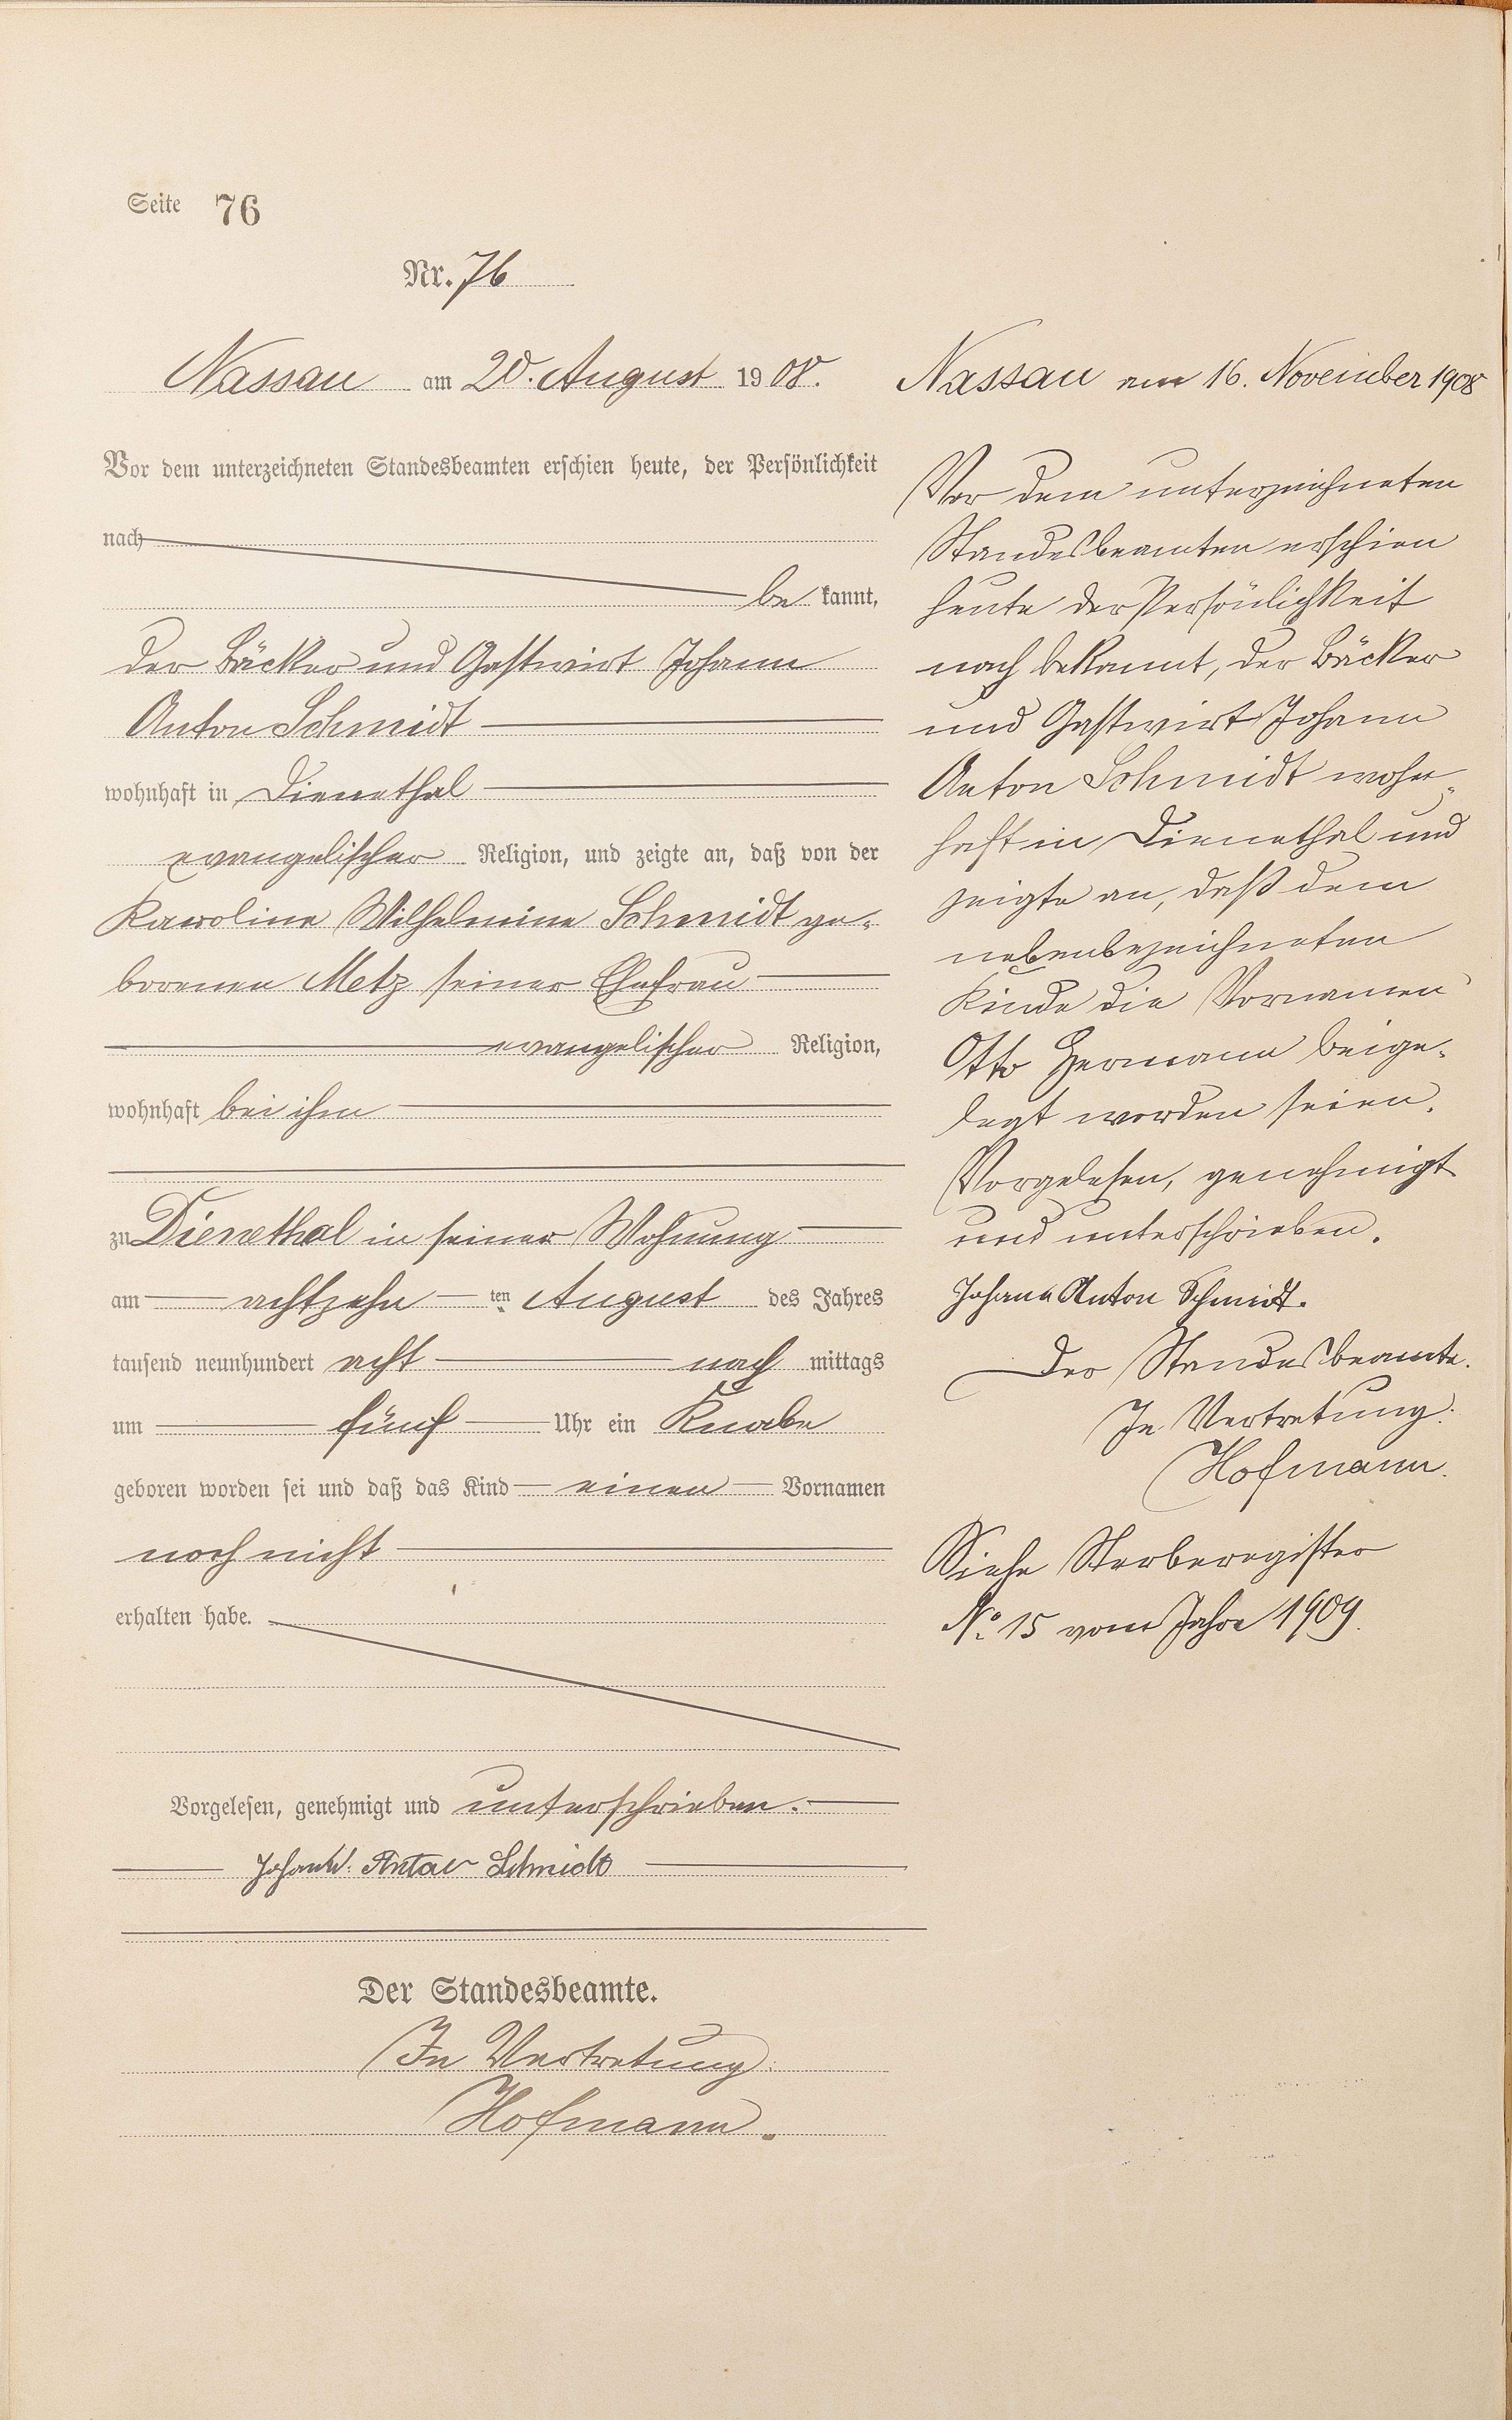 Seite 76
Nr. 76
Nassau am 20. August 1908.
Vor dem unterzeichneten Standesbeamten erschien heute, der Persönlichkeit
nach
be kannt,
der Bäcker und Gastwirt Johann
Anton Schmidt
wohnhaft in Dienethal
evangelischer Religion, und zeigte an, daß von der
Karoline Wilhelmine Schmidt ge-
borenen Metz seiner Ehefrau
evangelischer Religion,
wohnhaft bei ihm
zu Dienethal in seiner Wohnung
am achtzehn ten August des Jahres
tausend neunhundert acht nach mittags
um fünf Uhr ein Knabe
geboren worden sei und daß das Kind einen Vornamen
noch nicht
erhalten habe.
Vorgelesen, genehmigt und unterschrieben.
Johann Anton Schmidt
Der Standesbeamte.
In Vertretung:
Hofmann.
Nassau am 16. November 1908
Vor dem unterzeichneten
Standesbeamten erschien
heute der Persönlichkeit
nach bekannt, der Bäcker
und Gastwirt Johann
Anton Schmidt wohn-
haft in Dienethal und
zeigte an, daß dem
nebenbezeichneten
Kinde die Vornamen
Otto Hermann beige-
legt worden seien.
Vorgelesen, genehmigt
und unterschrieben.
Johann Anton Schmidt.
Der Standesbeamte.
In Vertretung:
Hofmann.
Siehe Sterberegister
No. 15 vom Jahre 1909.